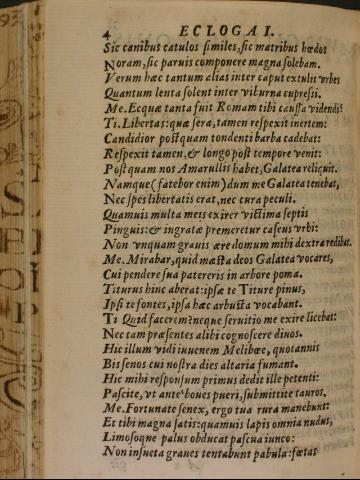 4 ECLOGA I.
Sic canibus catulos similes, sic matribus hœdos
Noram, sic paruis componere magna solebam.
Verum hæc tantum alias inter caput extulit vrbes
Quantum lenta solent inter viburna cupressi.
Me. Ecquæ tanta fuit Romam tibi caussa videndi?
Ti. Libertas: quæ sera, tamen respexit inertem:
Candidior postquam tondenti barba cadebat:
Respexit tamen, & longo post tempore venit:
Postquam nos Amarullis habet, Galatea reliquit.
Namque (fatebor enim) dum me Galatea tenebat,
Nec spes libertatis erat, nec cura peculi.
Quamuis multa meis exirer victima septis
Pinguis: & ingratæ premeretur caseus vrbi:
Non vnquam grauis ære domum mihi dextra redibat.
Me. Mirabar, quid mæsta deos Galatea vocares,
Cui pendere sua patereris in arbore poma.
Titurus hinc aberat: ipsæ te Titure pinus,
Ipsi te fontes, ipsa hæc arbusta vocabant.
Ti Quid facerem? neque seruitio me exire licebat:
Nec tam præsentes alibi cognoscere diuos.
Hic illum vidi iuuenem Melibœe, quotannis
Bis senos cui nostra dies altaria fumant.
Hic mihi responsum primus dedit ille petenti:
Pascite, vt ante boues pueri, submittite tauros.
Me. Fortunate senex, ergo tua rura manebunt:
Et tibi magna satis: quamuis lapis omnia nudus,
Limosoque palus obducat pascua iunco:
Non insueta graues tentabunt pabula: fœtas